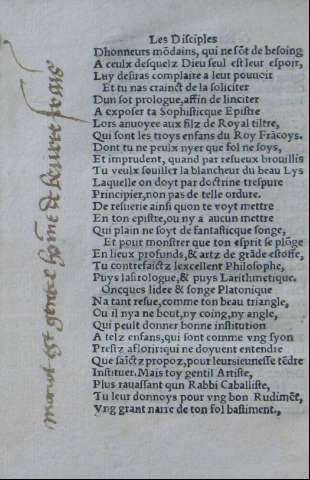 Les Disciples
Dhonneurs mõdains, qui ne sõt de besoing
A ceulx desquelz Dieu seul est leur espoir,
Luy desiras complaire a leur pouuoir
Et tu nas crainct de la soliciter
Dun sot prologue, affin de linciter
A exposer ta Sophisticque Epistre
Lors anuoyee aux filz de Royal tiltre,
Qui sont les troys enfans du Roy Frãcoys.
Dont tu ne peulx nyer que fol ne soys,
Et imprudent, quand par resueux brouillis
Tu veulx souiller la blancheur du beau Lys
Laquelle on doyt par doctrine trespure
Principier, non pas de telle ordure.
De resuerie ainsi quon te voyt mettre
En ton epistre, ou ny a aucun mettre
Qui plain ne soyt de fantasticque songe,
Et pour monstrer que ton esprit se plõge
En lieux profunds, & artz de grãde estoffe,
Tu contrefaictz lexcellent Philosophe,
Puys lastrologue, & puys Larithmetique.
Oncques lidee & songe Platonique
Na tant resue, comme ton beau triangle,
Ou il nya ne bout, ny coing, ny angle,
Qui peult donner bonne institution
A telz enfans, qui sont comme vng syon
Prestz a florir, qui ne doyuent entendre
Que faictz propoz, pour leur sieunesse tẽdre
Instituer. Mais toy gentil Artiste,
Plus rauassant qun Rabbi Caballiste,
Tu leur donnoys pour vng bon Rudimẽt,
Vng grant narre de ton fol bastiment.,
marot est gentil home de beurre frais